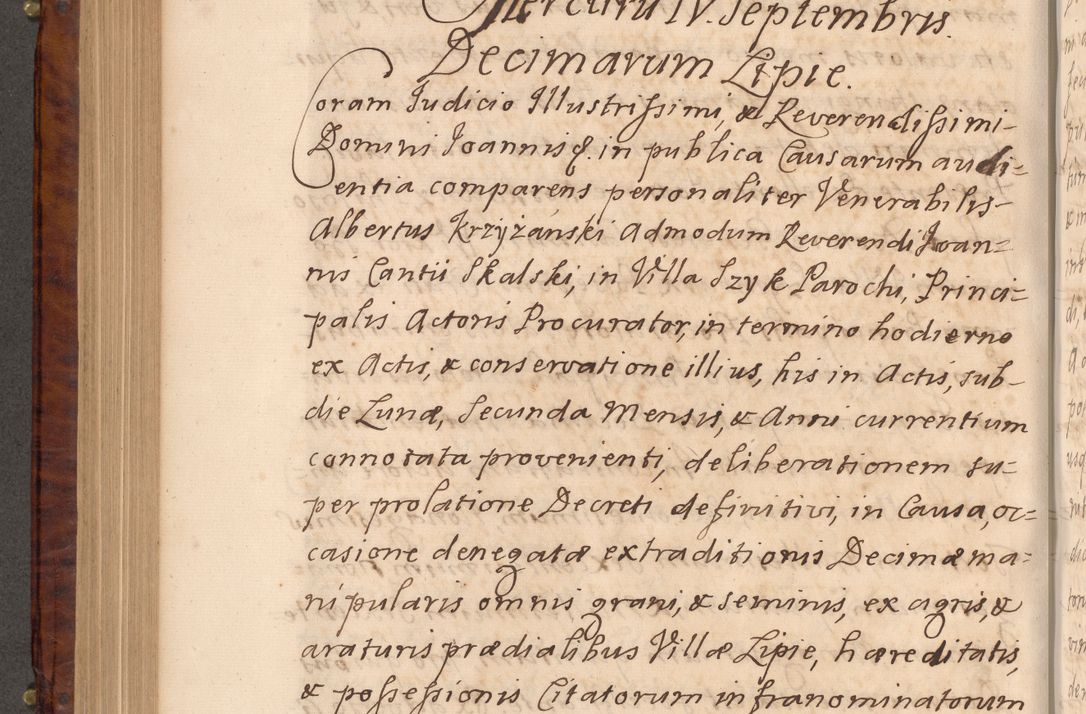 Mercurii IV. Septembris.
Decimarum Lipie.
Coram Iudicio Illustrissimi, & Reverendissimi
Domini Ioannis &. in publica Causarum audi=
entia comparens personaliter Venerabilis
Albertus Krzyżański Admodum Reverendi Ioan=
nis Cantii Skalski, in Villa Szyk Parochi, Princi=
palis Actoris Procurator, in termino hodierno
ex Actis, & conservatione illius, his in Actis, sub
die Lunæ, Secunda Mensis, & Anni currentium
connotata provenienti, deliberationem su=
per prolatione Decreti definitivi, in Causa, oc=
casione denegatæ extraditionis Decimæ ma=
nipularis omnis grani, & seminis, ex agris, &
araturis prædialibus Villæ Lipie, hæreditatis,
& possessionis Citatorum infranominatorum